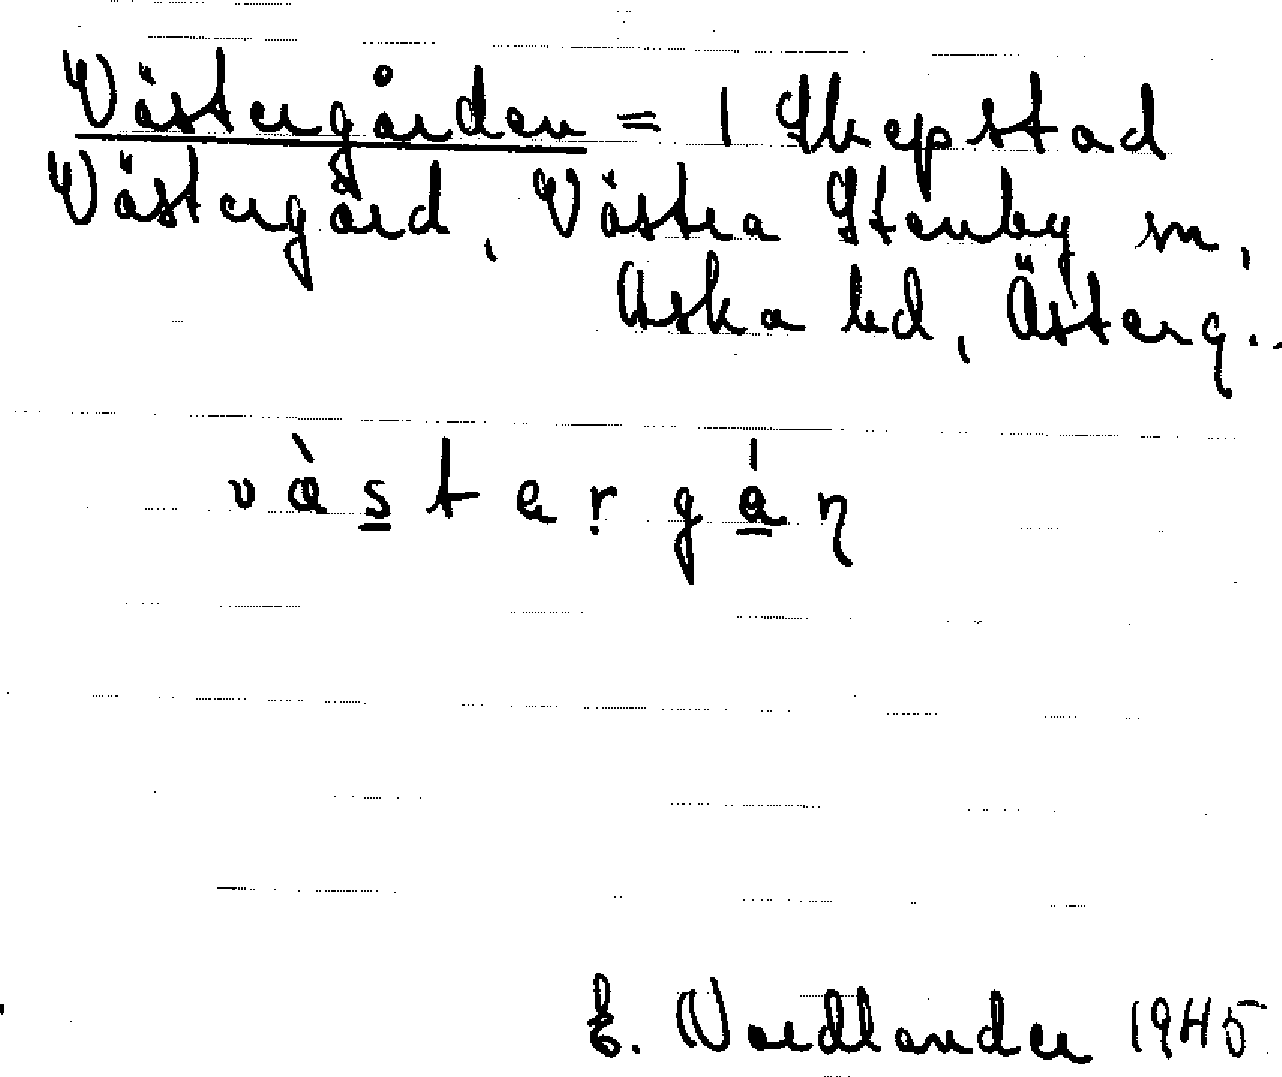 Västergården = 1 Skepstad
Västergård, Västra Stenby sn,
Aska hd, Österg..
vàstẹrgá̱ɳ
E. Nordlander 1945